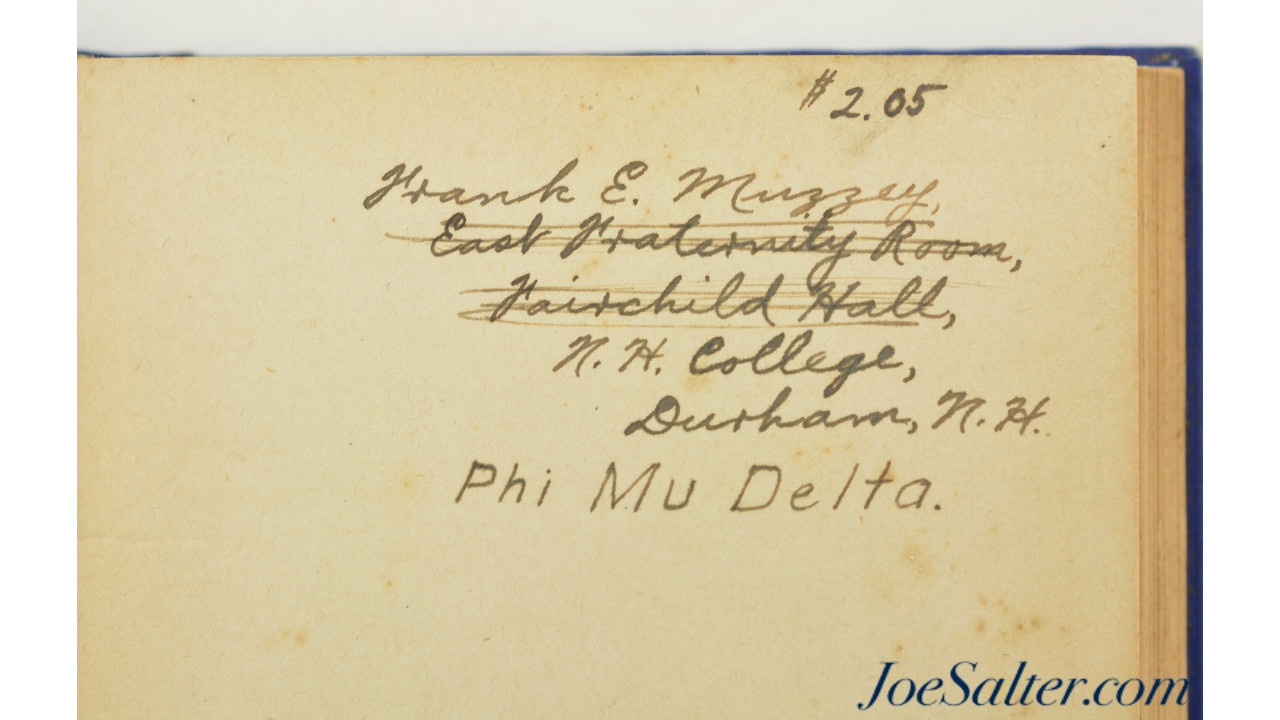 # 2.05
Frank E. Muzzey,
East Fraternity Room,
Fairchild Hall,
N. H. College,
Durham, N. H.
Phi Mu Delta.
JoeSalter.com